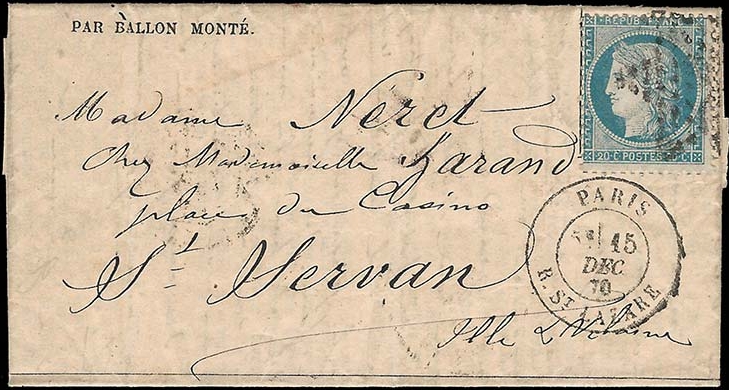 PAR BALLON MONTÉ.
REPUB. FRANC.
20 C POSTES 20 C
Madame Neret
chez Mademoiselle Garand
place du Casino
St Servan
Ille & Vilaine
PARIS
15
DEC.
70
R. ST LAZARE